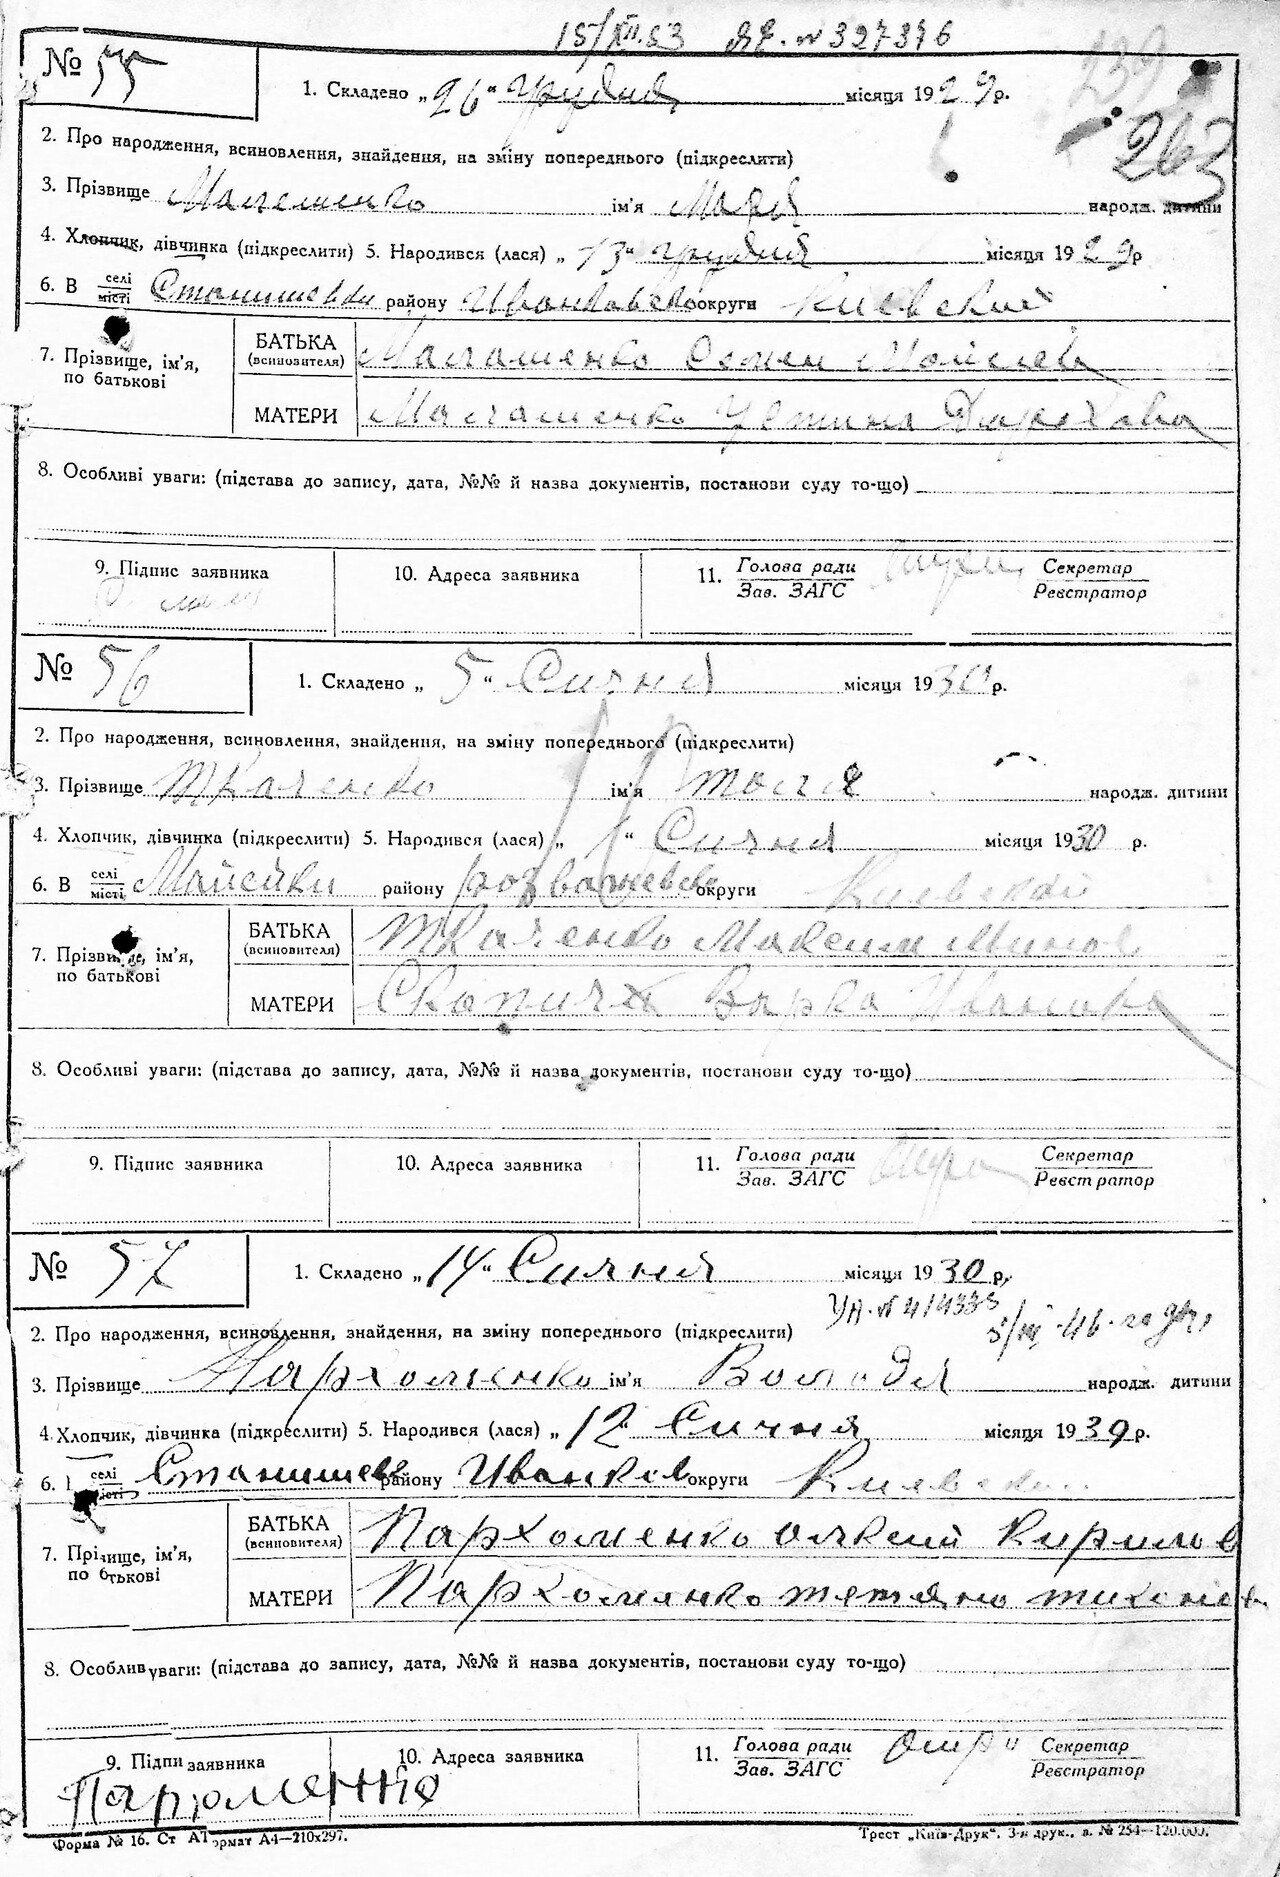 15/XII.53 ЯЕ. № 327376
№ 55
1. Складено „26“ грудня місяця 1929 р.
263
2. Про народження, всиновлення, знайдення, на зміну попереднього (підкреслити)
3. Прізвище ім'я Марія народж. дитини
4. Хлопчик, дівчинка (підкреслити) 5. Народився (лася) „13“ грудня місяця 1929 р
6. В селі/місті Станишевки району Иванковско округи Киевской
7. Прізвище, ім'я, по батькові
БАТЬКА (всиновителя) Малашенко Семен Мойсеев
МАТЕРИ Малашенко Устина
8. Особливі уваги: (підстава до запису, дата, №№ й назва документів, постанови суду то-що)
9. Підпис заявника
10. Адреса заявника
11. Голова ради Секретар
Зав. ЗАГС Реєстратор
№ 56
1. Складено „5“ Сичня місяця 1930 р.
2. Про народження, всиновлення, знайдення, на зміну попереднього (підкреслити)
3. Прізвище Ткаченко ім'я народж. дитини
4. Хлопчик, дівчинка (підкреслити) 5. Народився (лася) „1“ Сичня місяця 1930 р.
6. В селі/місті Майейки району розважевско округи Киевской
7. Прізвище, ім'я, по батькові
БАТЬКА (всиновителя) Ткаченко Максим Минов
МАТЕРИ Варка Иванова
8. Особливі уваги: (підстава до запису, дата, №№ й назва документів, постанови суду то-що)
9. Підпис заявника
10. Адреса заявника
11. Голова ради Секретар
Зав. ЗАГС Реєстратор
№ 57
1. Складено „14“ Сичня місяця 1930 р.
УА. № 414335 5/III-46-году
2. Про народження, всиновлення, знайдення, на зміну попереднього (підкреслити)
3. Прізвище Пархоменко ім'я Володя народж. дитини
4. Хлопчик, дівчинка (підкреслити) 5. Народився (лася) „12“ Сичня місяця 1930 р.
6. селі/місті Станишевк району Иванков округи Киевской
7. Прізвище, ім'я, по батькові
БАТЬКА (всиновителя) Пархоменко олксий Кирилов
МАТЕРИ Пархоменко тетяна тихонов
8. Особлив уваги: (підстава до запису, дата, №№ й назва документів, постанови суду то-що)
9. Підпи заявника
10. Адреса заявника
11. Голова ради Секретар
Зав. ЗАГС Реєстратор
Форма № 16. Ст А1 ормат А4—210х297.
Трест „Київ-Друк“. 3-я друк., з. № 254—120.000.